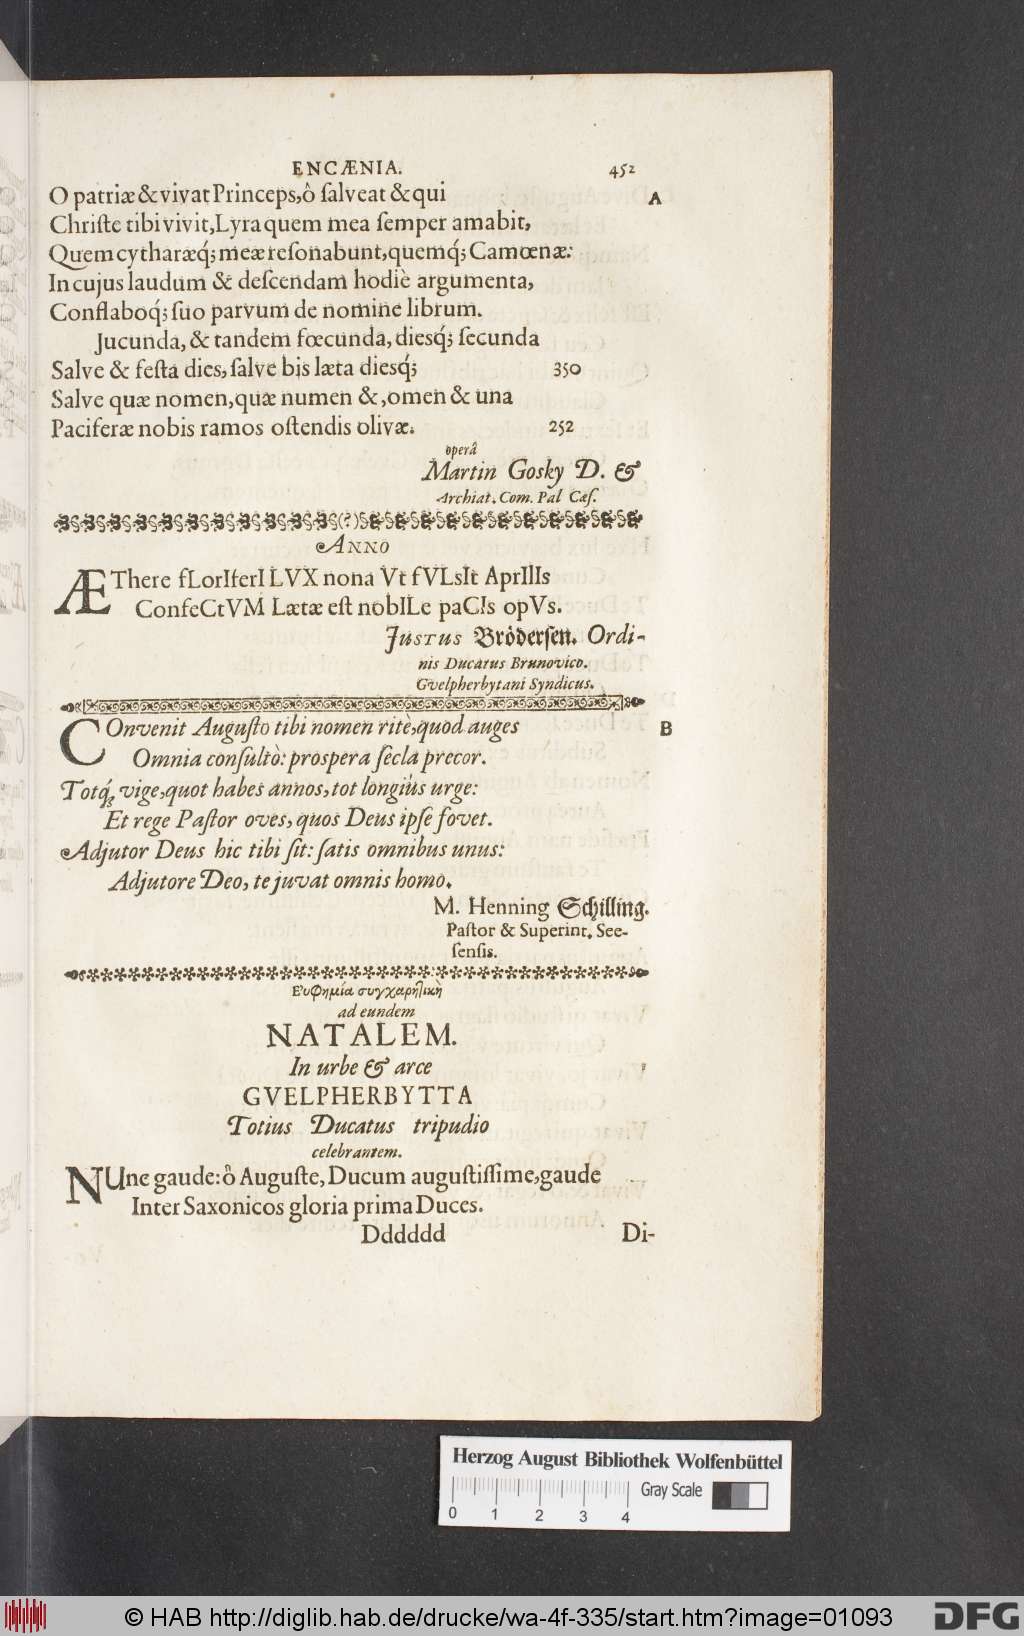 ENCÆNIA. 452
O patriæ & vivat Princeps, ô ſalveat & qui A
Chriſte tibi vivit, Lyra quem mea ſemper amabit,
Quem cytharæq́; meæ reſonabunt, quemq́; Camœnæ:
In cujus laudum & deſcendam hodiè argumenta,
Conflaboq́; ſuo parvum de nomine librum.
Jucunda, & tandem fœcunda, diesq́; ſecunda
Salve & feſta dies, ſalve bis læta diesq́; 350
Salve quæ nomen, quæ numen &, omen & una
Paciferæ nobis ramos oſtendis olivæ. 252
operâ
Martin Gosky D. &
Archiat. Com. Pal Cæſ.
(?)
ANNO
ÆThere fLorIferI LVX nona Vt fVLsIt AprIlIs
ConfeCtVM Lætæ eſt nobILe paCIs opVs.
JUSTUS Brödersen. Ordi-
nis Ducatus Brunovico.
Gvelpherbytani Syndicus.
COnvenit Auguſto tibi nomen ritè, quod auges B
Omnia conſultò: proſpera ſecla precor.
Totq́; vige, quot habes annos, tot longiùs urge:
Et rege Paſtor oves, quos Deus ipſe fovet.
Adjutor Deus hic tibi ſit: ſatis omnibus unus:
Adjutore Deo, te juvat omnis homo.
M. Henning Schilling.
Paſtor & Superint. See-
ſenſis.
Ευφημία συγχαρητικὴ
ad eundem
NATALEM.
In urbe & arce
GVELPHERBYTTA
Totius Ducatus tripudio
celebrantem.
NUnc gaude: ô Auguſte, Ducum auguſtiſſime, gaude
Inter Saxonicos gloria prima Duces.
Dddddd Di-
Herzog August Bibliothek Wolfenbüttel
Gray Scale
0 1 2 3 4
© HAB http://diglib.hab.de/drucke/wa-4f-335/start.htm?image=01093 DFG